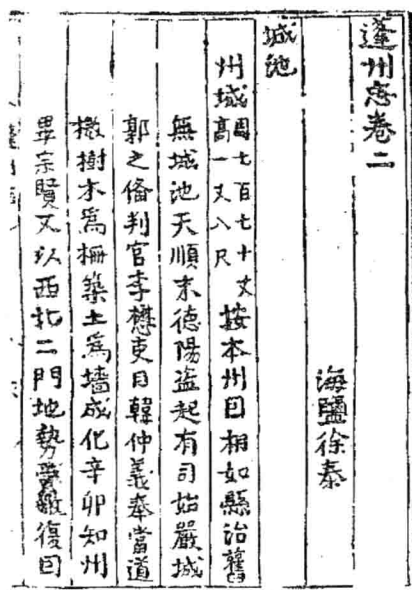 蓬州志卷二
海鹽徐泰
城池
州城周七百七十丈高一丈八尺按本州因相如縣治舊
無城池天順末德陽盜起有司始嚴城
郭之俻判官李懋吏目韓仲義奉當道
檄樹木為柵築土為墻成化辛卯知州
畢宗賢又以西北二門地勢復因